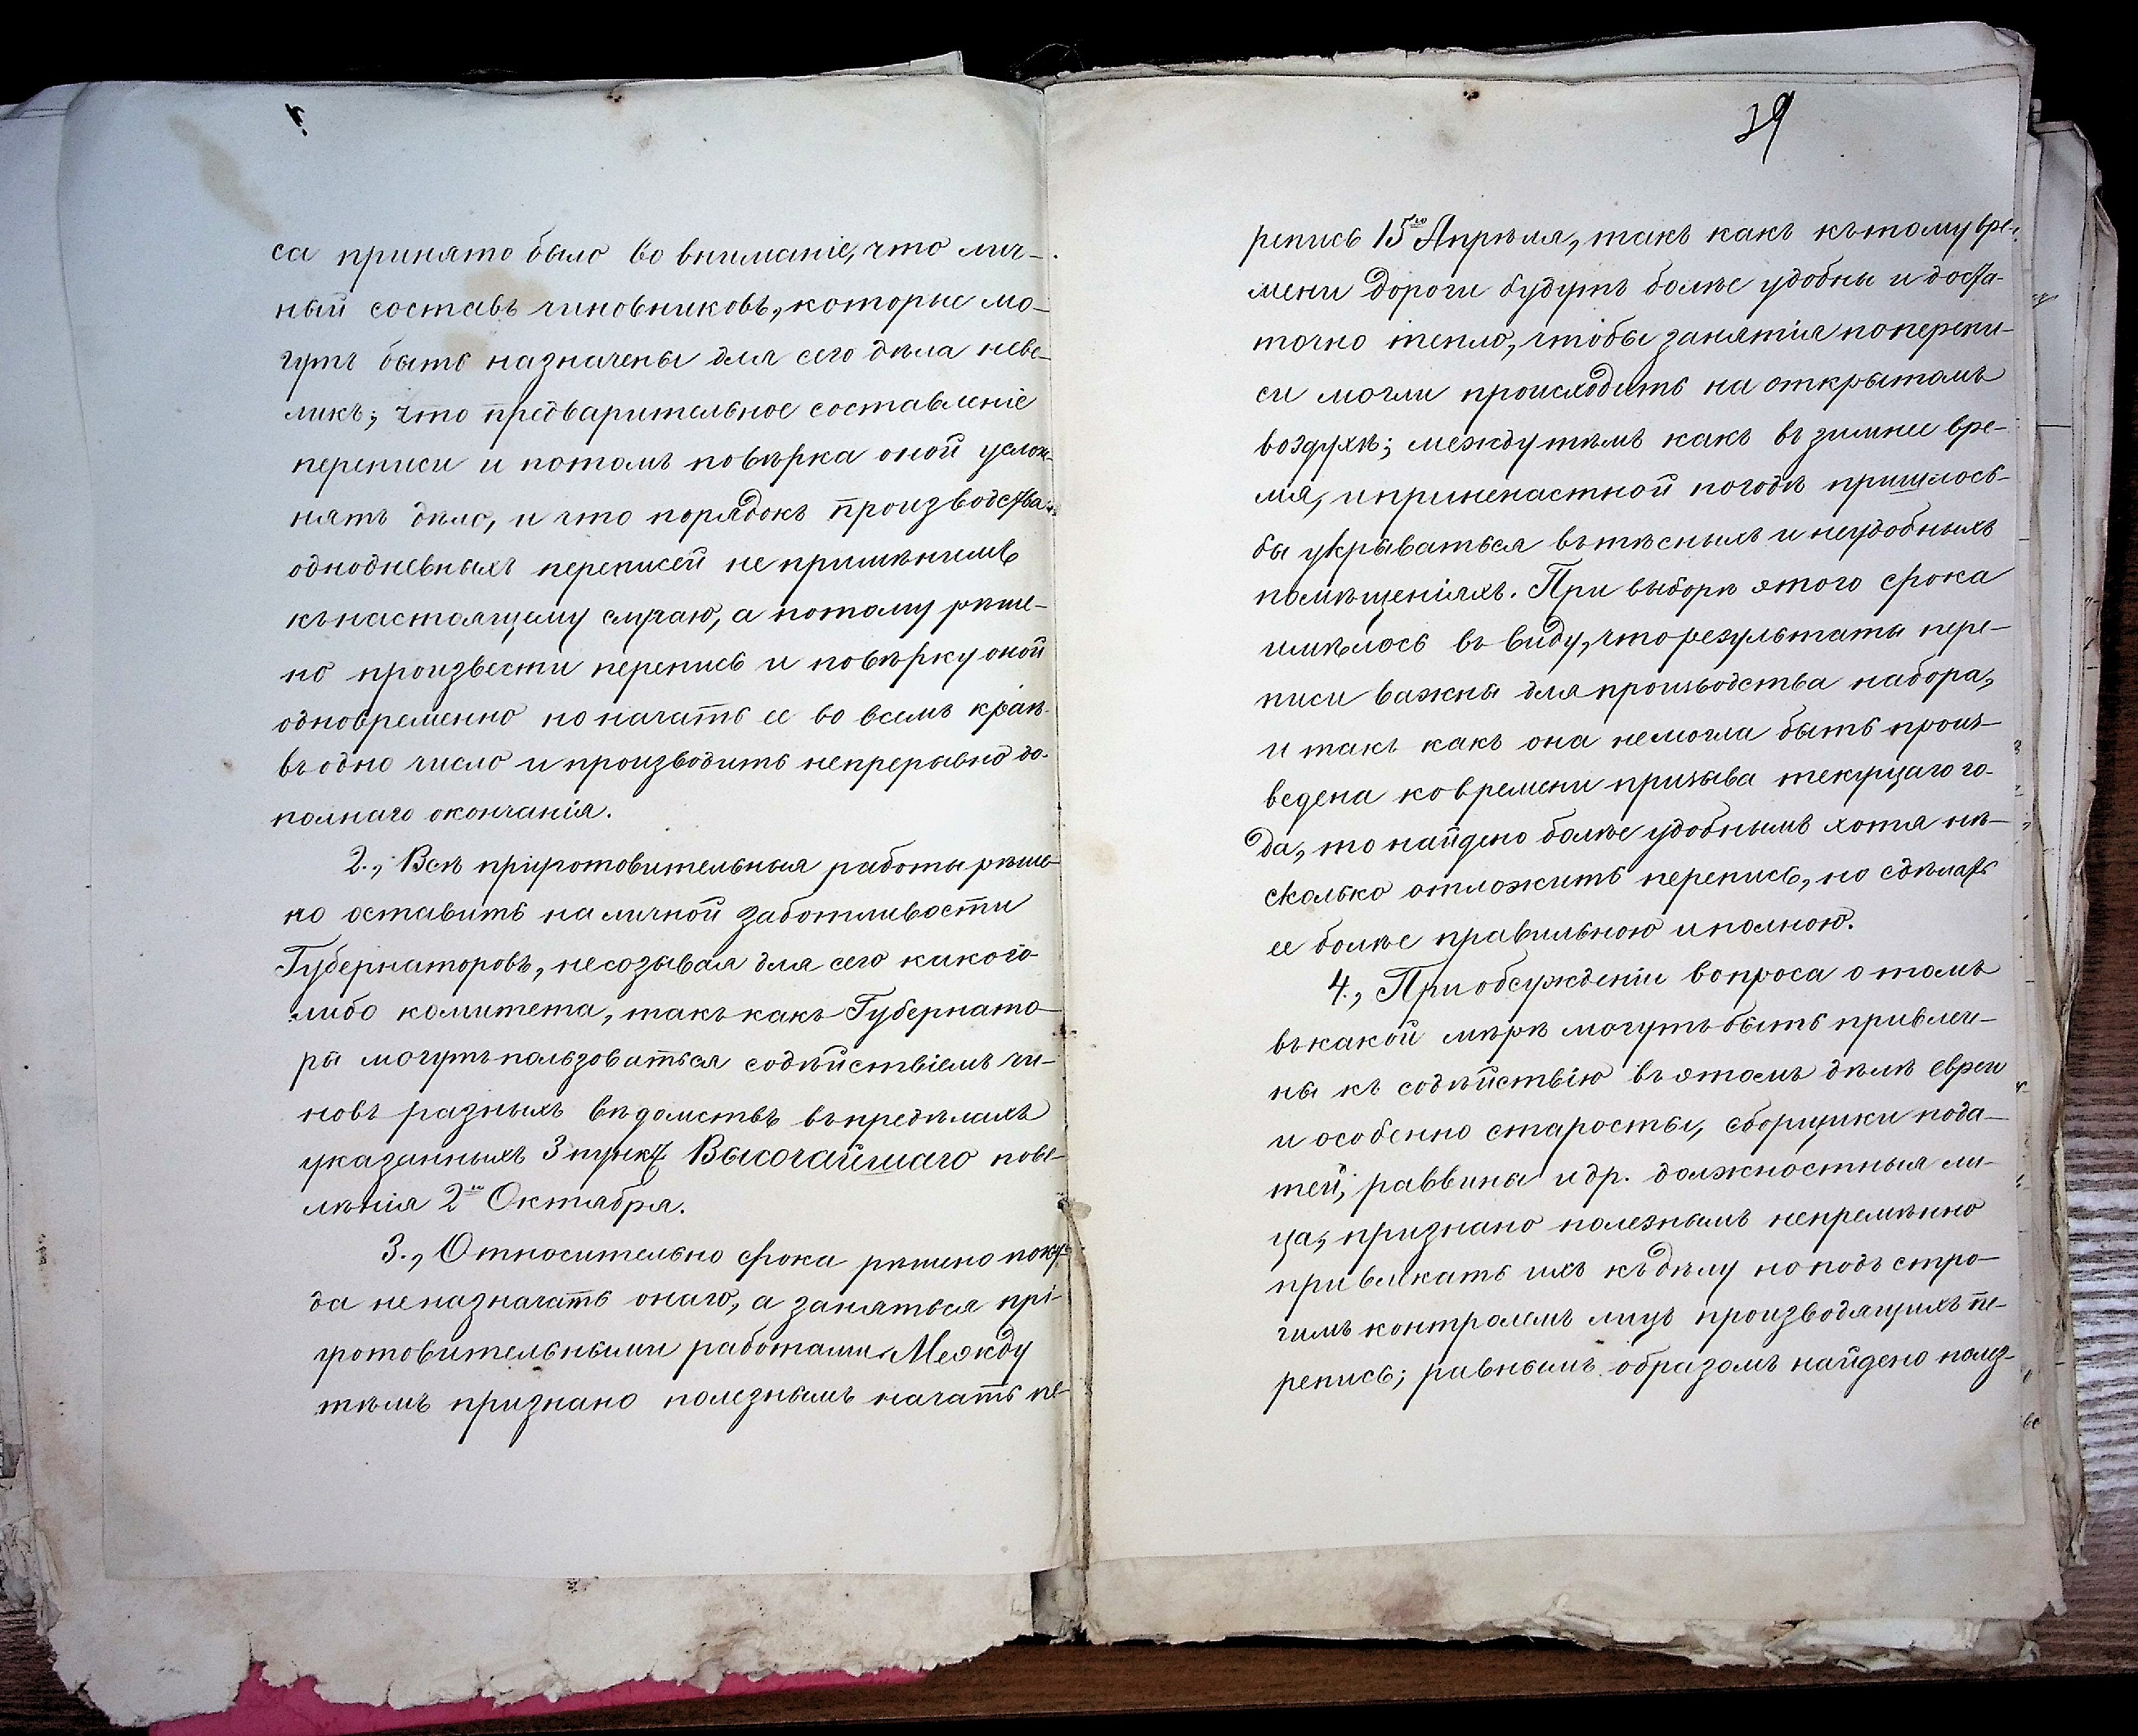 са принято было во вниманіе, что лич-
ный составъ чиновниковъ, которые мо-
гутъ быть назначены для сего дѣла неве-
ликъ; что предварительное составленіе
переписи и потомъ повѣрка оной услож-
нятъ дѣло, и что порядокъ производства
однодневныхъ переписей не примѣнимъ
къ настоящему случаю, а потому рѣше-
но произвести перепись и повѣрку оной
одновременно но начать ее во всемъ краѣ
въ одно число и производить непрерывно до
полнаго окончанія.
2., Всѣ пріготовительныя работы рѣше-
но оставить на личной заботливости
Губернаторовъ, несозывая для сего какого
либо комитета, такъ какъ Губернато-
ры могутъ пользоваться содѣйствіемъ чи-
новъ разныхъ вѣдомствъ въ предѣлахъ
указанныхъ 3 пункт. Высочайшаго пове-
лѣнія 2го Октября.
3., Относительно срока рѣшено поку-
да неназначать онаго, а заняться прі-
готовительными работами. Между
тѣмъ признано полезнымъ начать пе-
39
репись 15го Апрѣля, такъ какъ къ тому вре-
мени дороги будутъ болѣе удобны и доста-
точно тепло, чтобы занятія по перепи-
си могли происходить на открытомъ
воздухѣ; между тѣмъ какъ въ зимнее вре-
мя, и при ненастной погодѣ пришлось-
бы укрываться въ тѣсныхъ и неудобныхъ
помѣщеніяхъ. При выборѣ этого срока
имѣлось въ виду, что результаты пере-
писи важны для производства набора,
и такъ какъ она немогла быть произ-
ведена ко времени призыва текущаго го-
да, то найдено болѣе удобнымъ хотя нѣ-
сколько отложить перепись, но сдѣлать
ее болѣе правильною и полною.
4., При обсужденіи вопроса о томъ
въ какой мѣрѣ могутъ быть привлече-
ны къ содѣйствію въ этомъ дѣлѣ евреи
и особенно старосты, сборщики пода-
тей, раввины и др. должностныя ли-
ца, признано полезнымъ непремѣнно
привлекать ихъ къ дѣлу но подъ стро-
гимъ контролемъ лицъ производящихъ пе-
репись; равнымъ образомъ найдено полез-